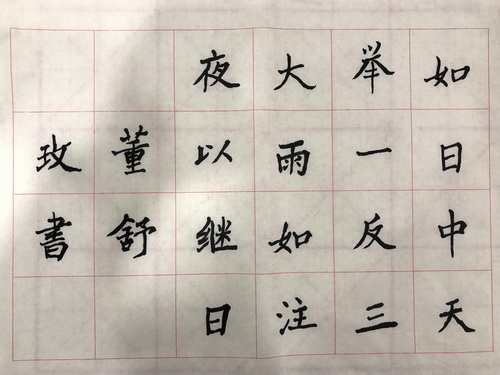 如日中天
举一反三
大雨如注
夜以继日
董舒
玫书